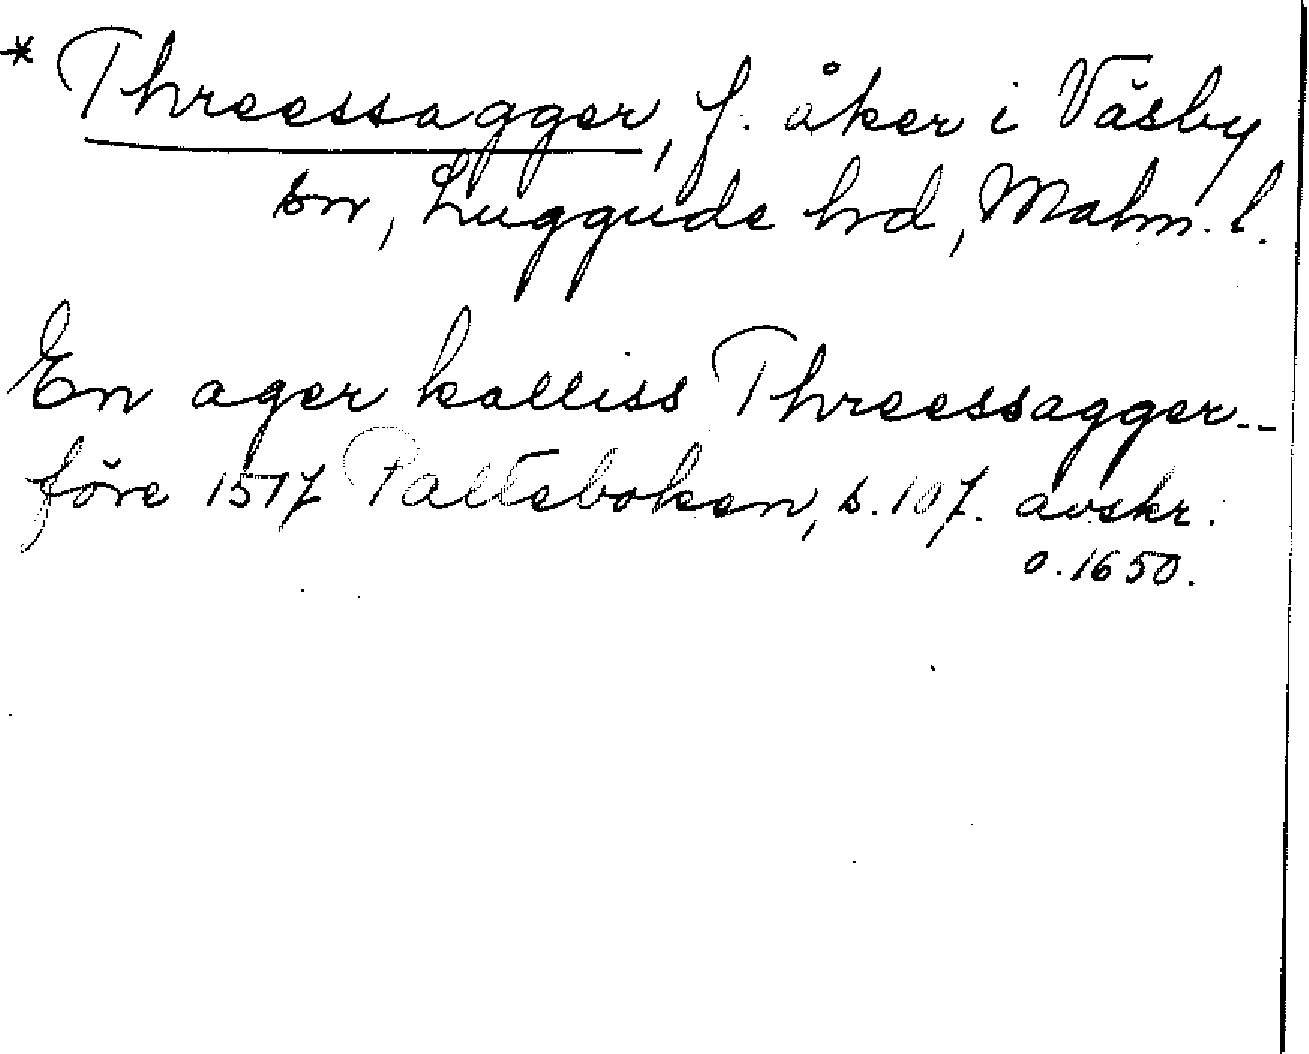 * Threessagger, f. åker i Väsby
sn, Luggude hd, Malm. l.
En ager kalliss Threessagger--
före 1517 Palteboken, s. 107. avskr.
o. 1650.